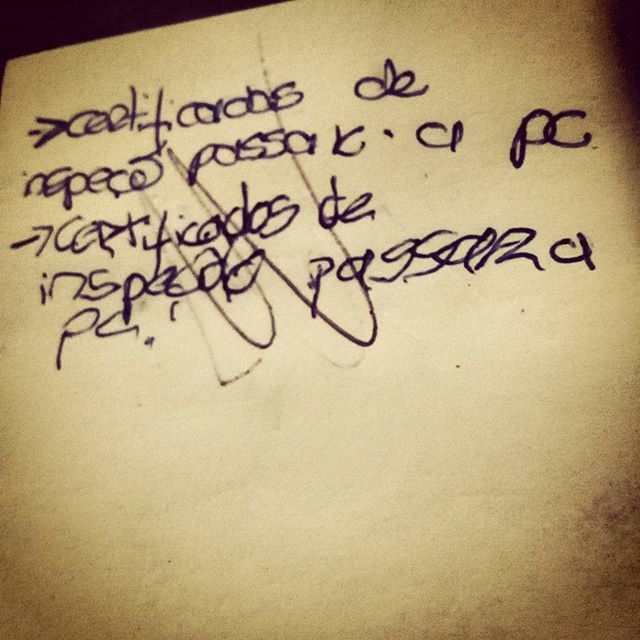 → certificados de
inspeçõ passar. a pc
→ certificados de
inspeção passar a
pc.!